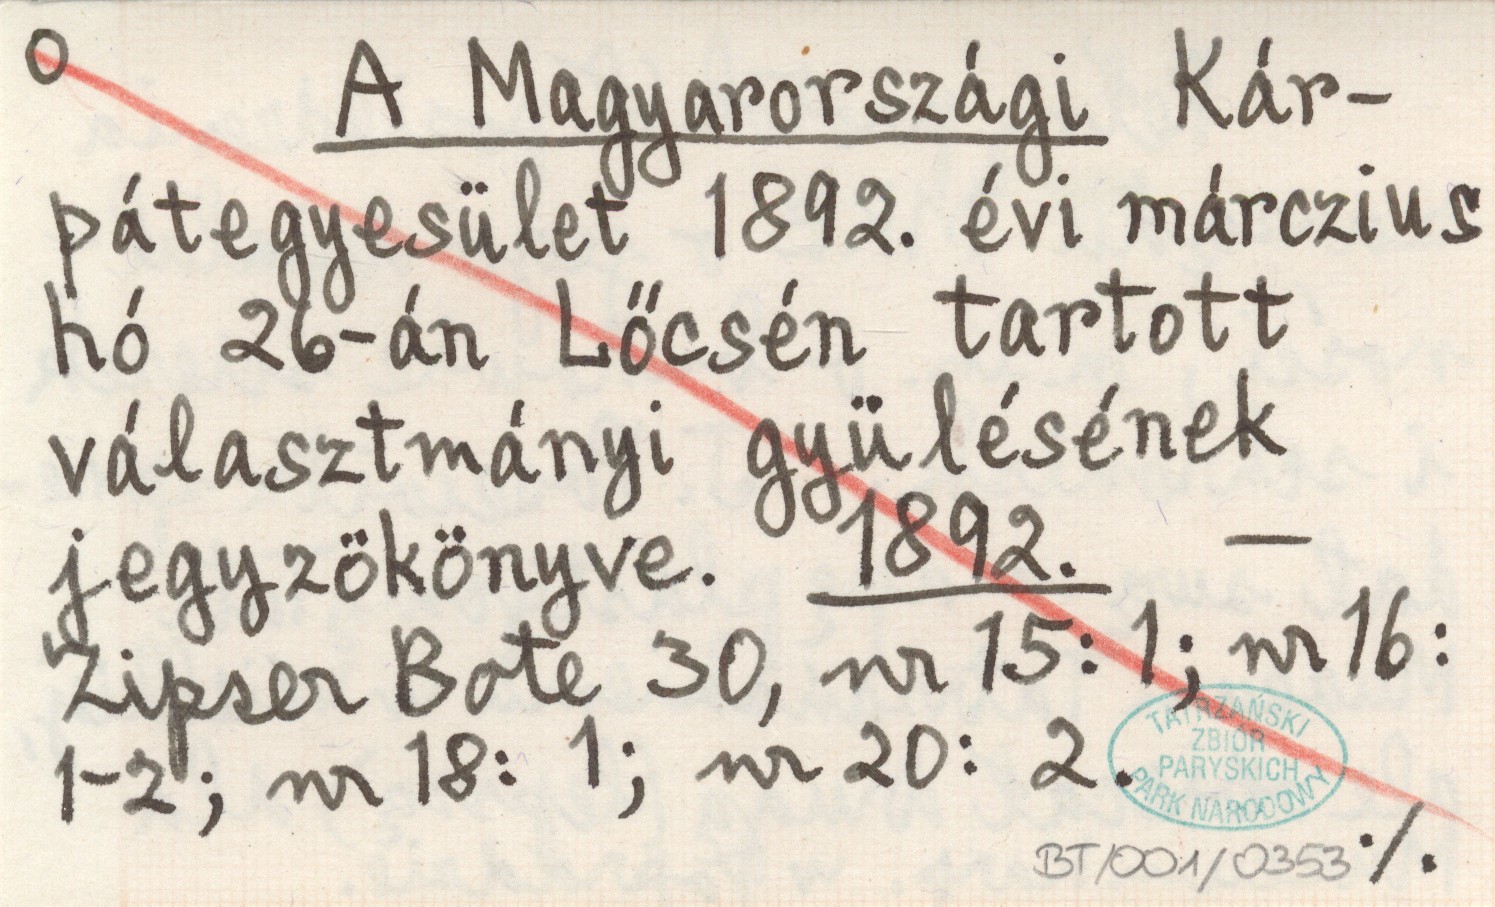 O A Magyarországi Kár-
pátegyesület 1892. évi márczius
hó 26-án Lőcsén tartott
választmányi gyülésének
jegyzökönyve. 1892. —
Zipser Bote 30, nr 15: 1; nr 16:
1-2; nr 18: 1; nr 20: 2.
TATRZAŃSKI
ZBIÓR
PARYSKICH
PARK NARODOWY
BT/001/0353 ./.